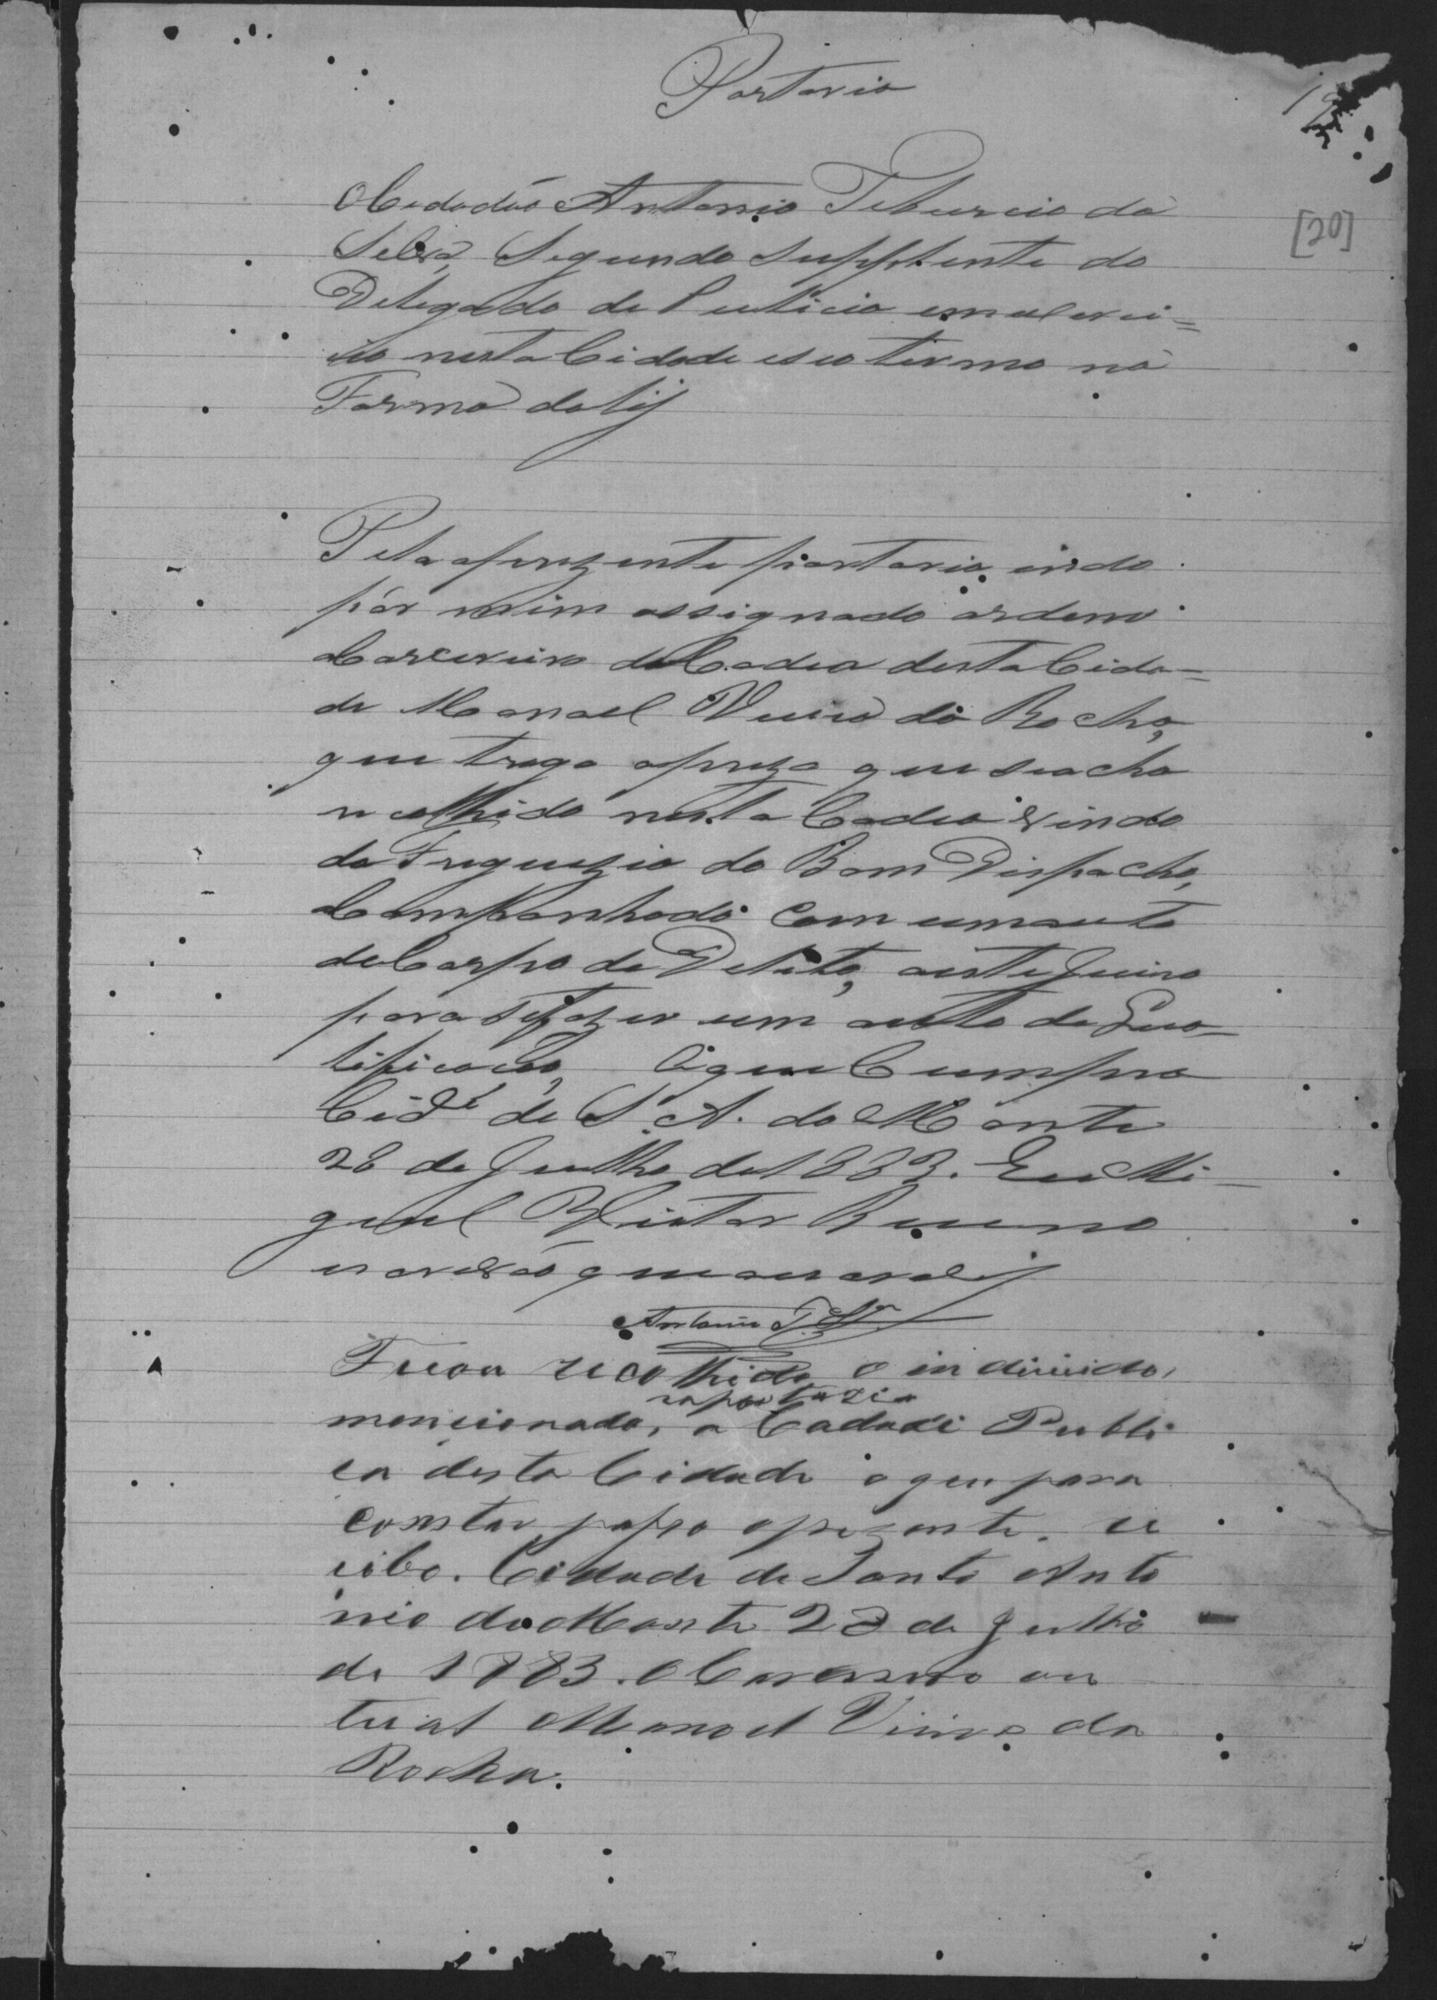 Portaria
12
[20]
O Cidadão Antonio Teburcio da
Silva, Segundo Supplente do
Delegado de Pulicia em exerci=
cio nesta Cidade e seo termo na
Forma da Lej
Pela aprezente portaria indo
pór mim assignado ordeno
Carcereiro da Cadea desta Cida=
de Manoel Vieira da Rocha,
que traga aprezo que seacha
recolhido nesta Cadeia vindo
da Freguezia do Bom Dispacho,
Companhado com um auto
de Corpo de Delito, aeste Juizo
para sefazer um auto de
tificação, Oque Cumpra
Cidᵉ de S. A. do Monte
28 de Julho de 1883. Eu Mi-
guel Victor Bueno
escrivão que escrevi
Antonio T. S.ª
Fica recolhido o individo,
na portaria
mencionado, a Cadade Publi
ca desta Cidade o que para
constar passo oprezente. re
cibo. Cidade de Santo Anto
nio do Monte 28 de Julho
de 1883. O Carcereiro au
tual Manoel Vieira da
Rocha.